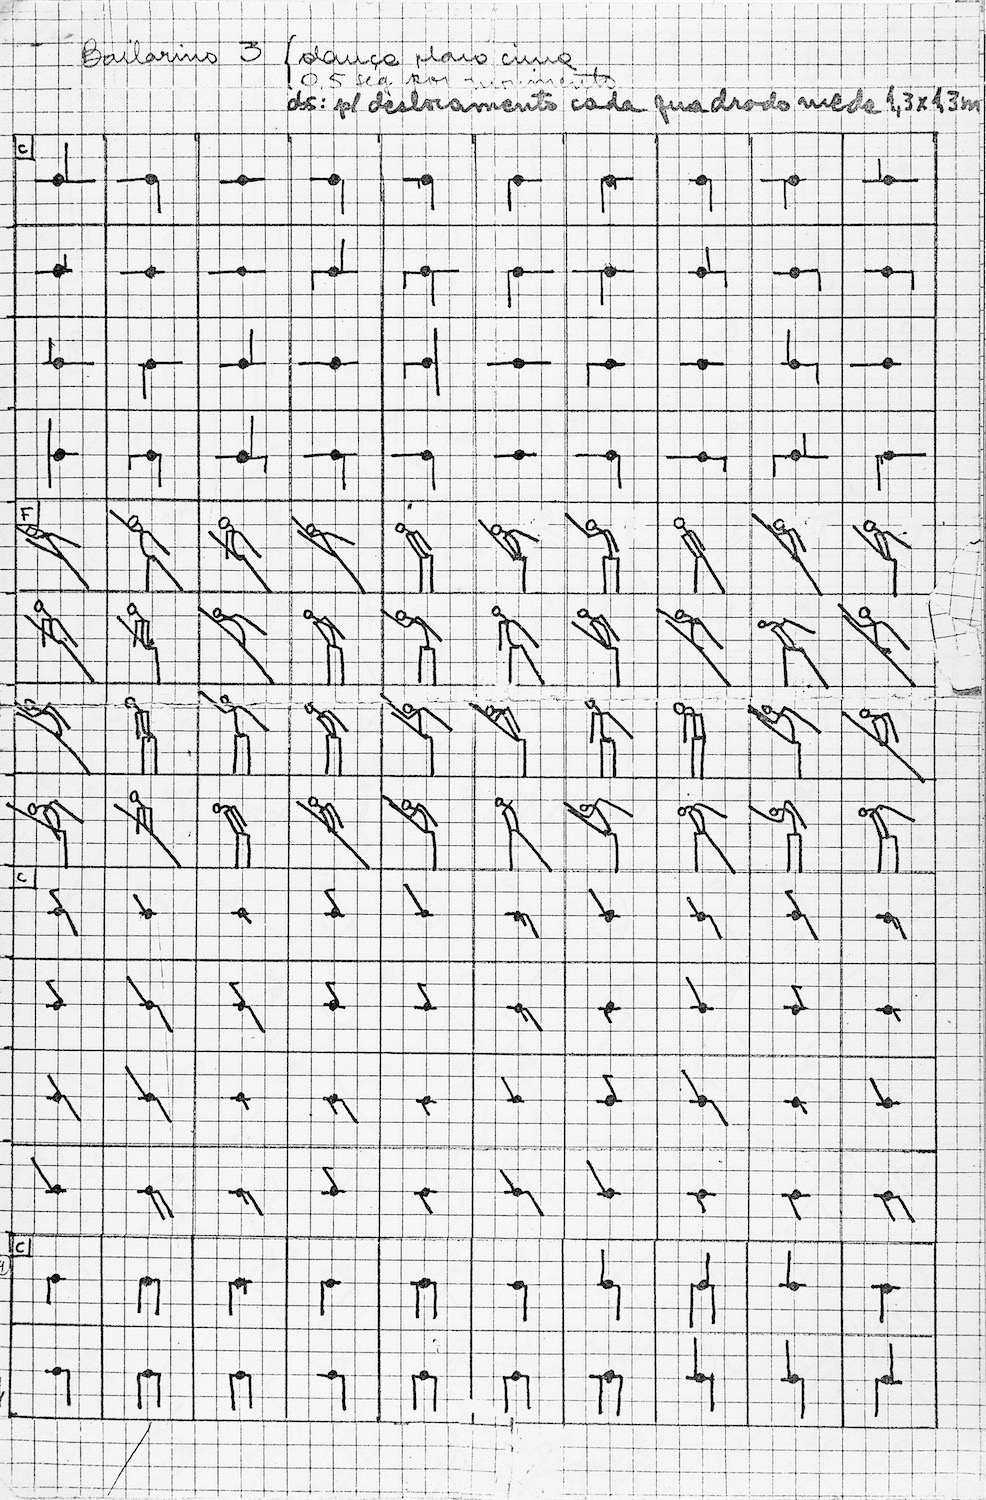 Bailarino 3 (dança plano cima
(0,5 seg por movimento
ds: p/ deslocamento cada quadrado mede 1,3x1,3m
C
F
C
C